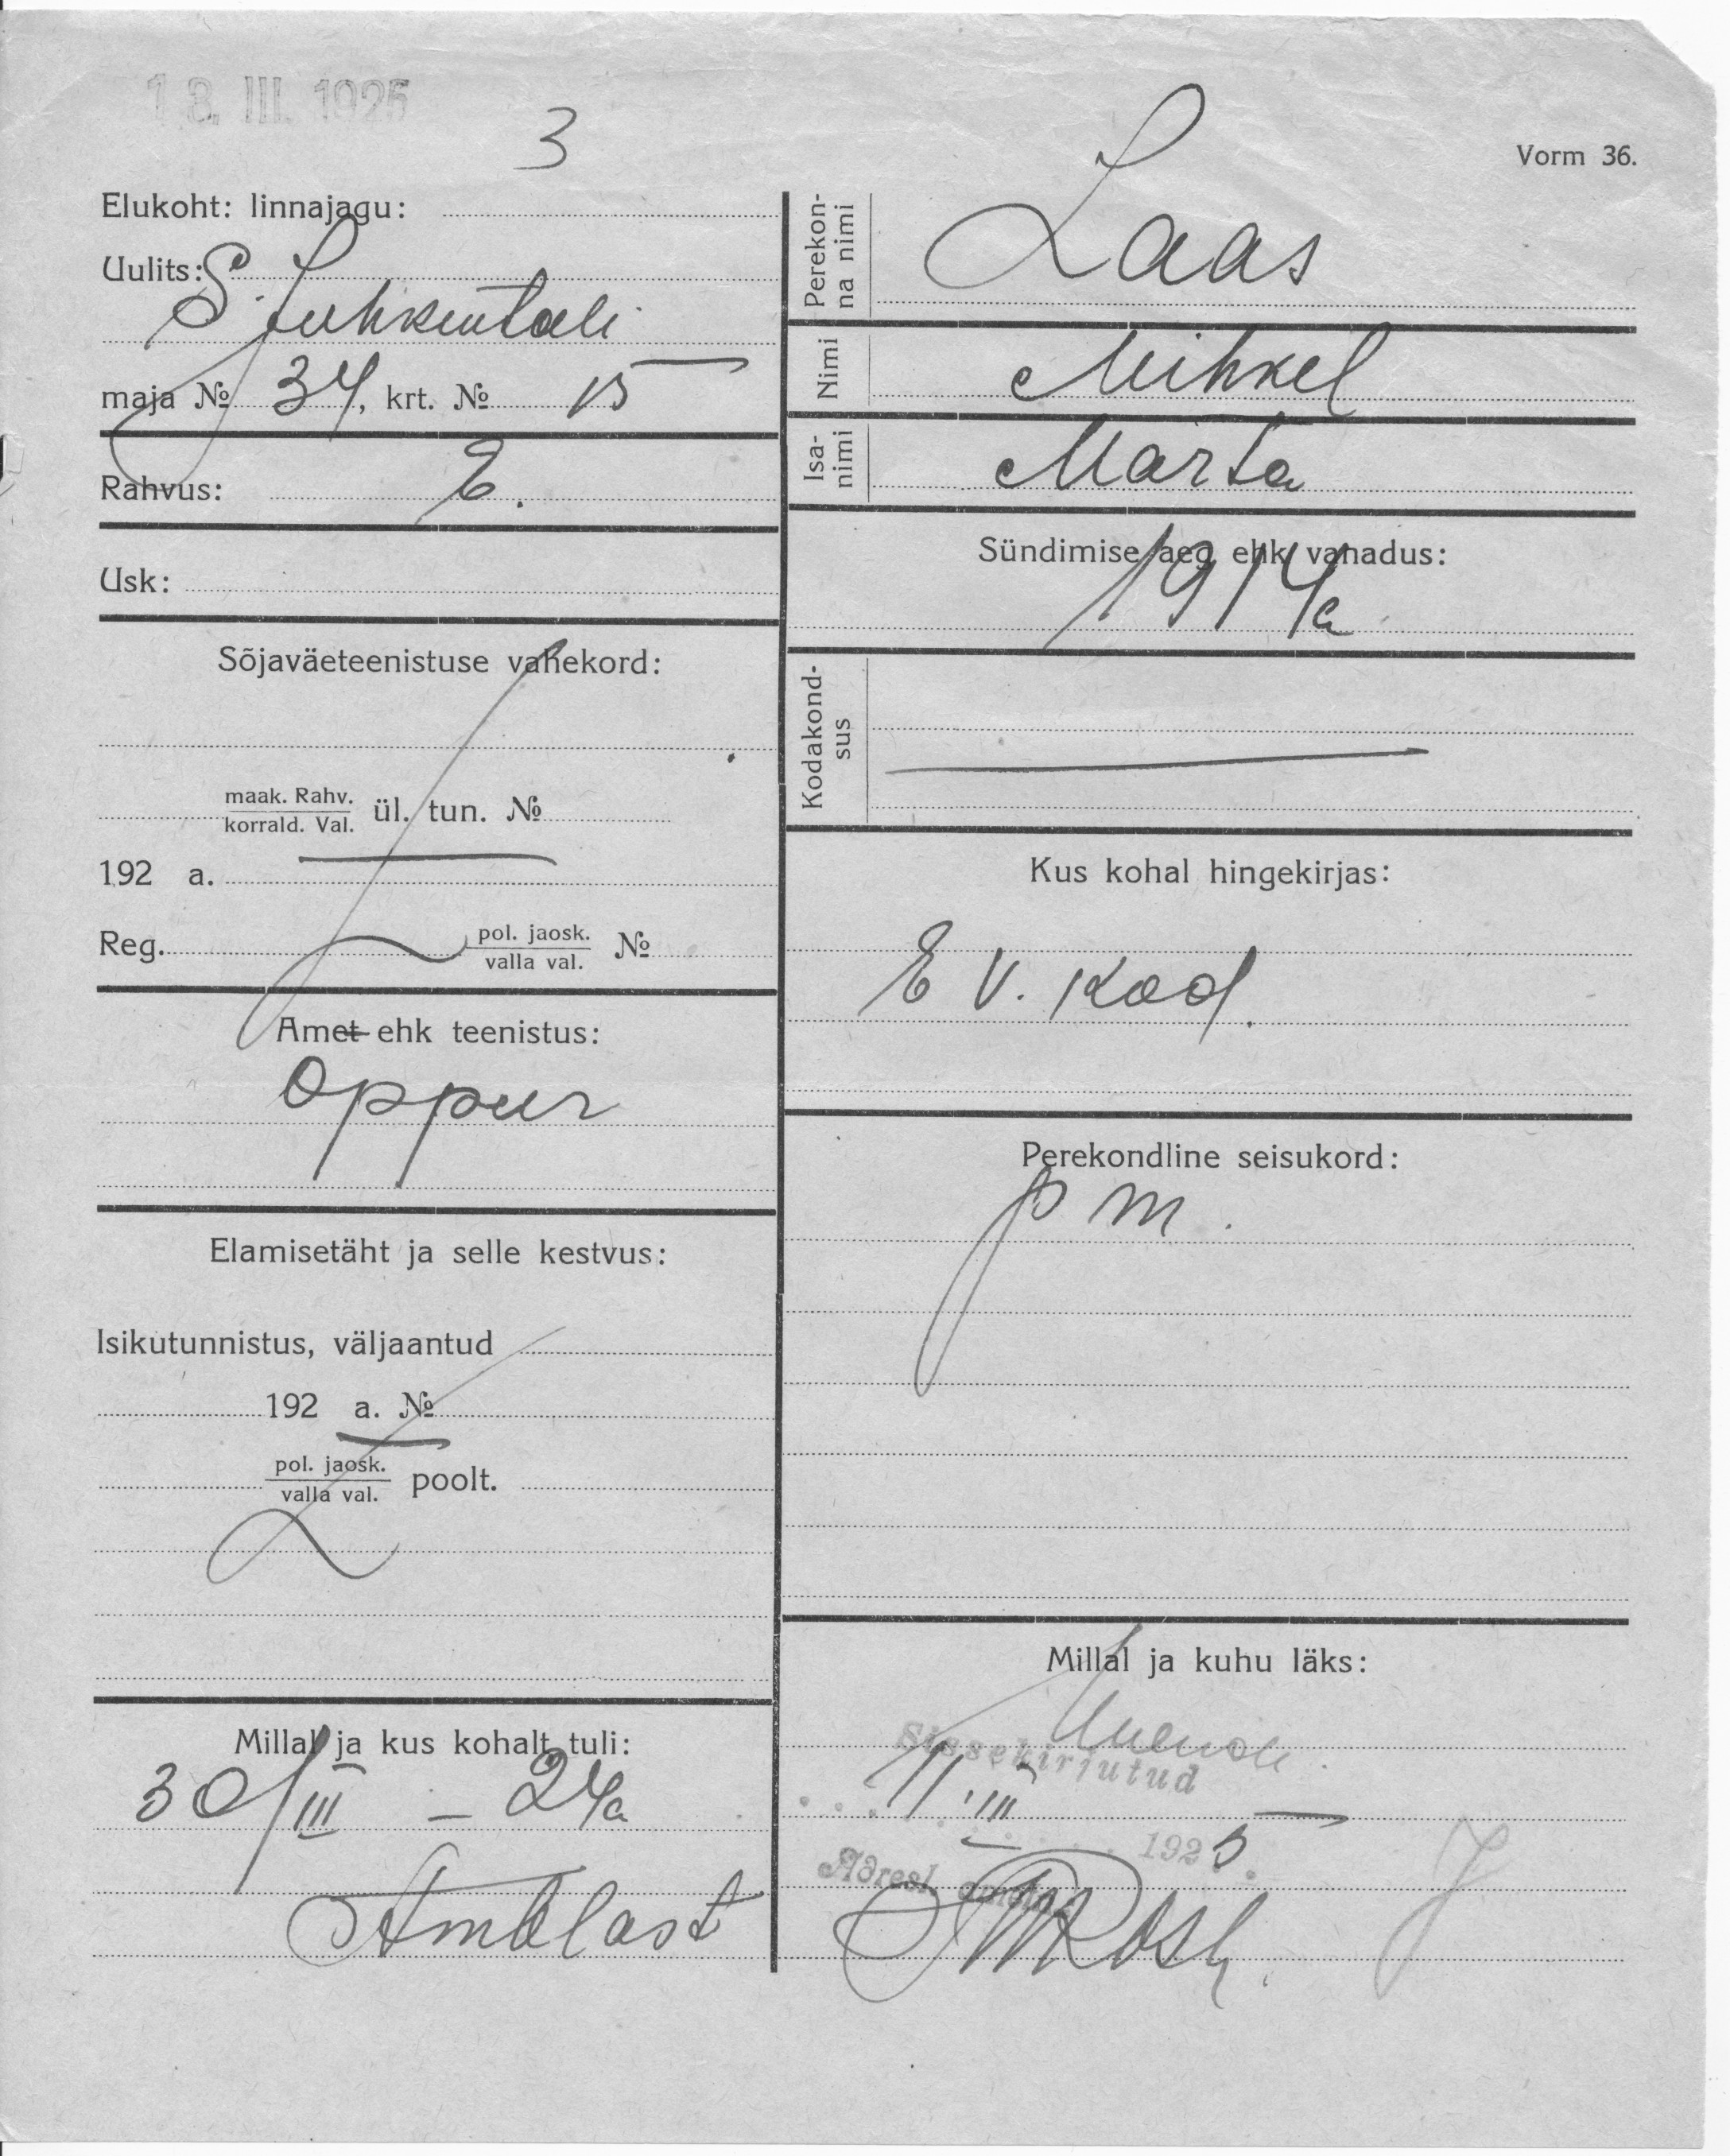 13. III. 1925
3
Vorm 36.
Elukoht: linnajagu:
Uulits: S.
Juhkentali
maja № 34, krt. № 15
Rahvus: E.
Usk:
Sõjaväeteenistuse vahekord:
maak. Rahv.
korrald. Val.
ül. tun. №
192 a.
Reg.
pol. jaosk.
valla val.
№
Amet ehk teenistus:
Oppur
Elamisetäht ja selle kestvus:
Isikutunnistus, väljaantud
192 a. №
pol. jaosk.
valla val.
poolt.
Millal ja kus kohalt tuli:
30/III – 24a
Amblast
Perekonna nimi
Laas
Nimi
Mihkel
Isanimi
Märta
Sündimise aeg ehk vanadus:
1914a
Kodakondsus
Kus kohal hingekirjas:
E V. Kod.
Perekondline seisukord:
p m.
Millal ja kuhu läks:
Sissekirjutud
11. III
1925.
Adresl.